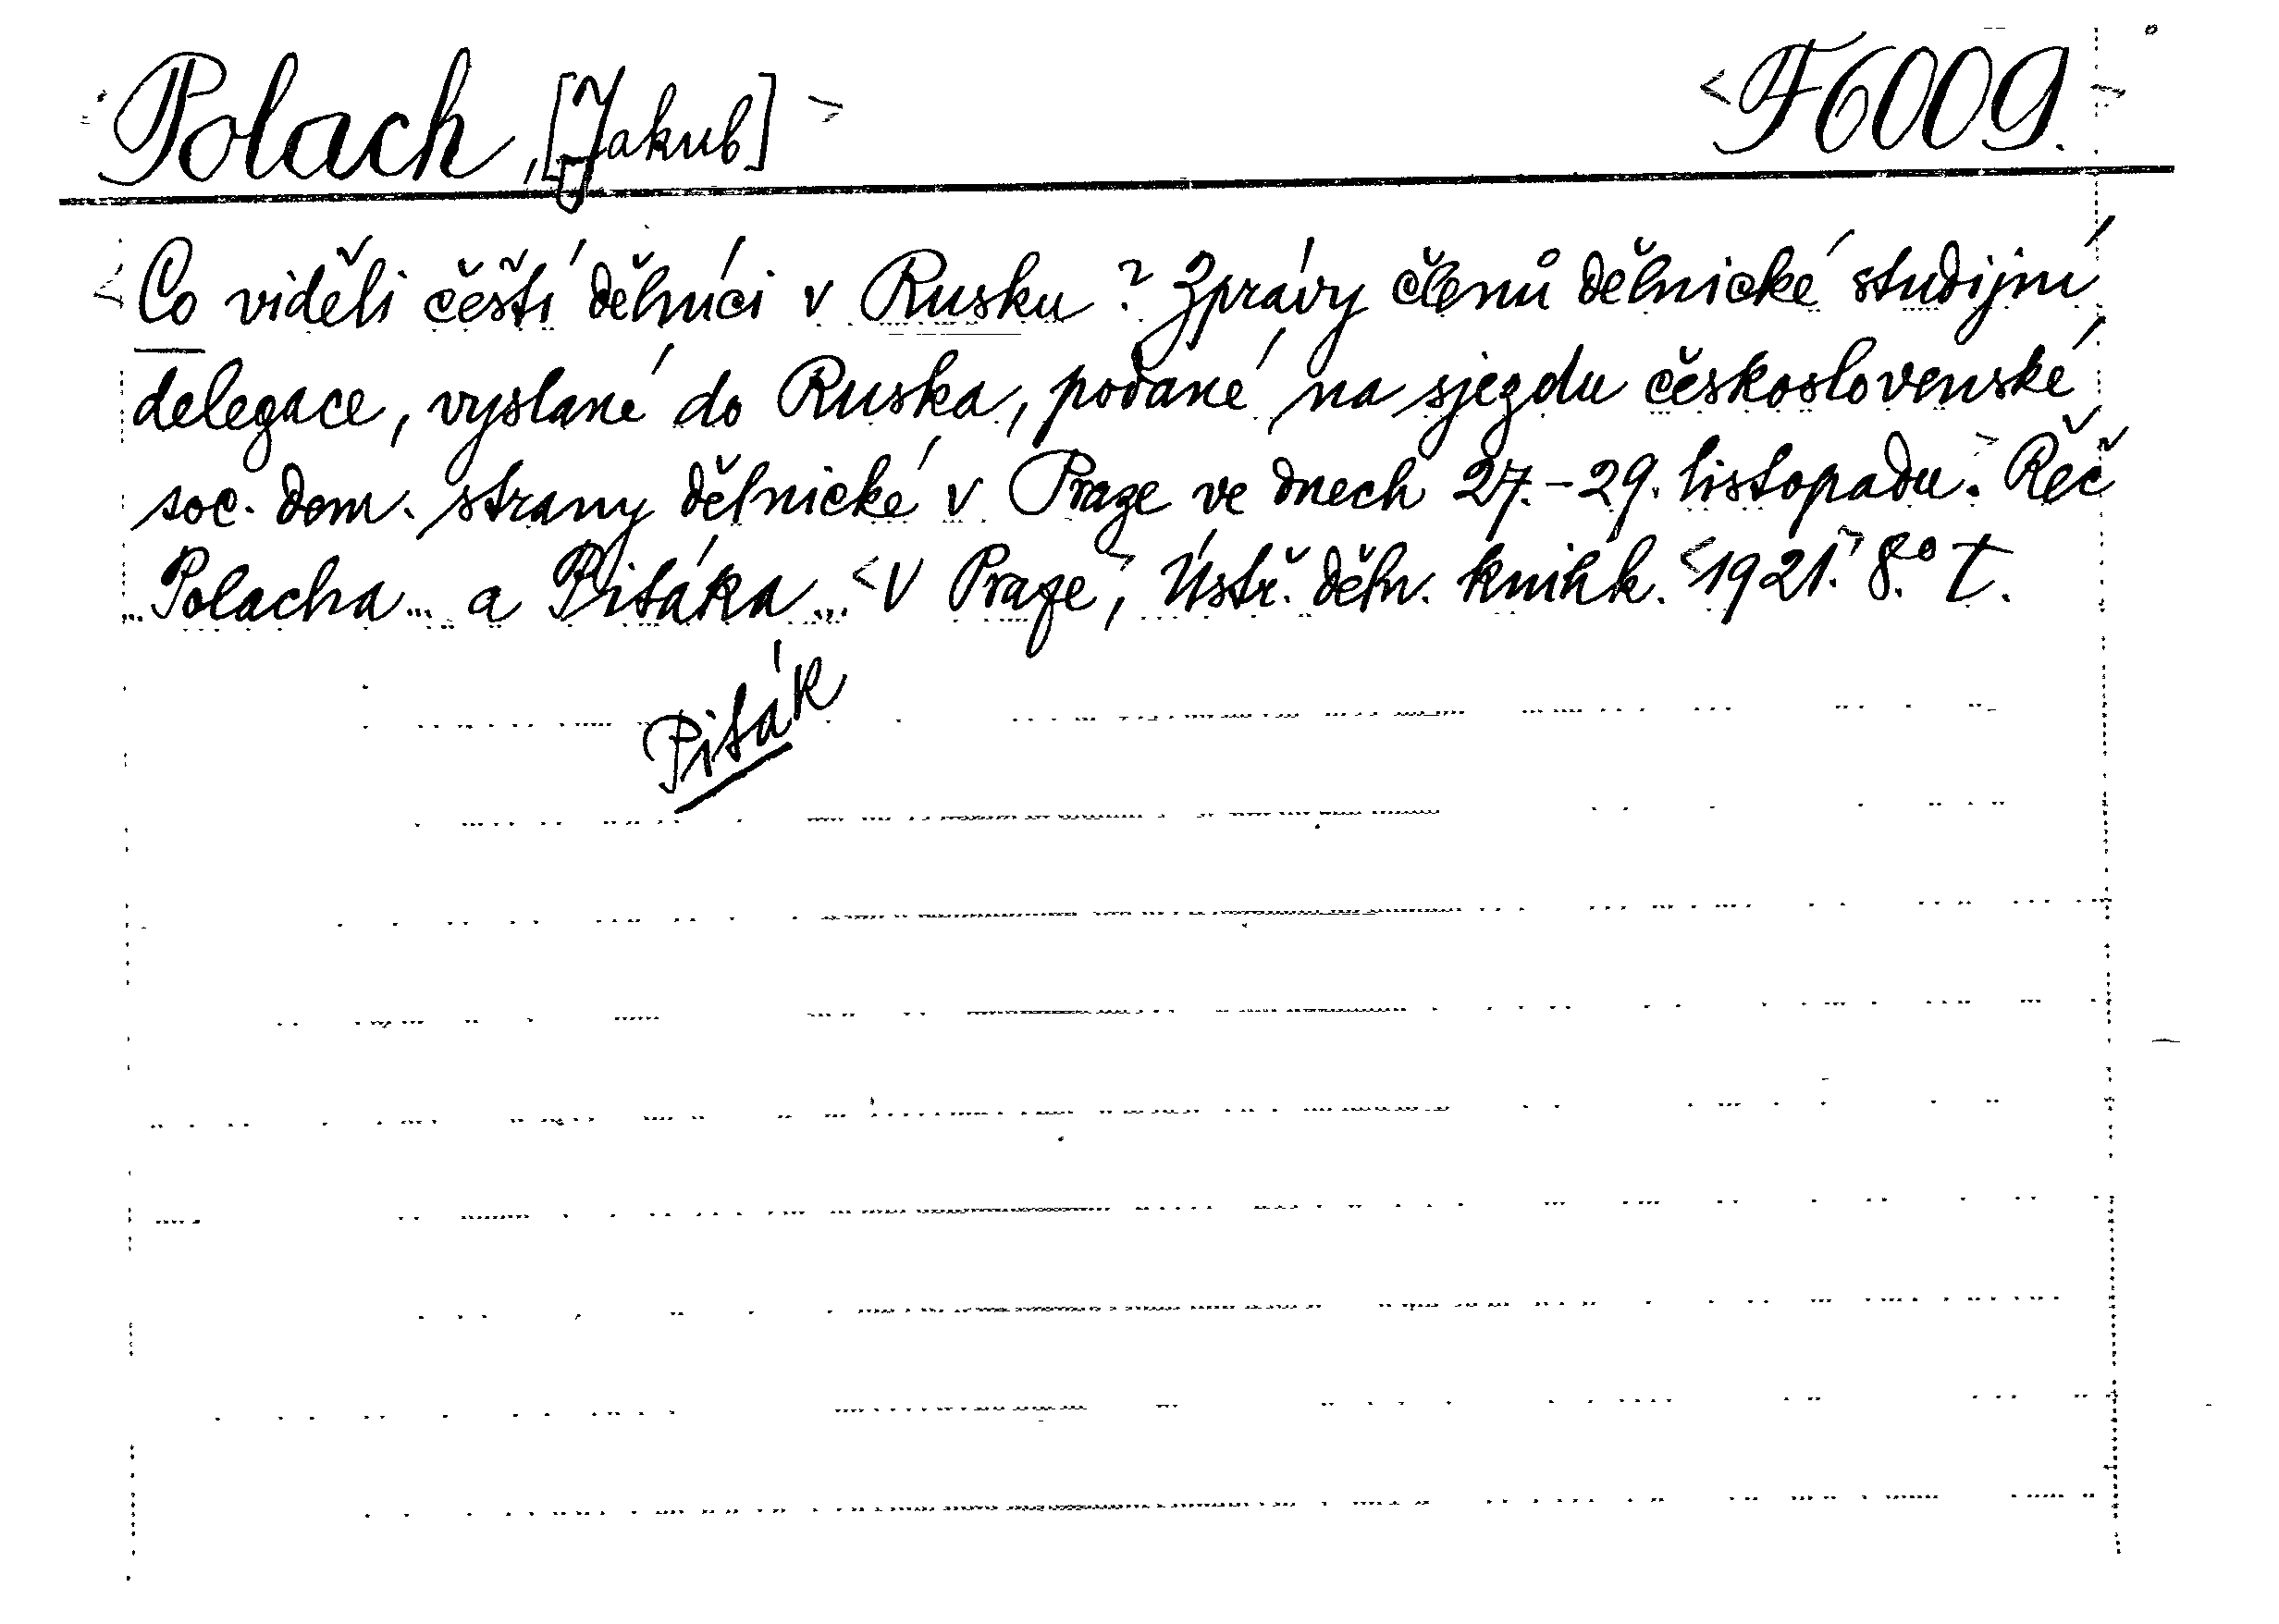 Polach, [Jakub] <F 6009.>
Co viděli čeští dělníci v Rusku? Zprávy členů dělnické studijní
delegace, vyslané do Ruska, podané na sjezdu československé
soc. dem. strany dělnické v Praze ve dnech 27.-29. listopadu. Řeč
Polacha... a Pisáka... <V Praze>, Ústř. děln. knihk. <1921.> 8.° T.
Pisák